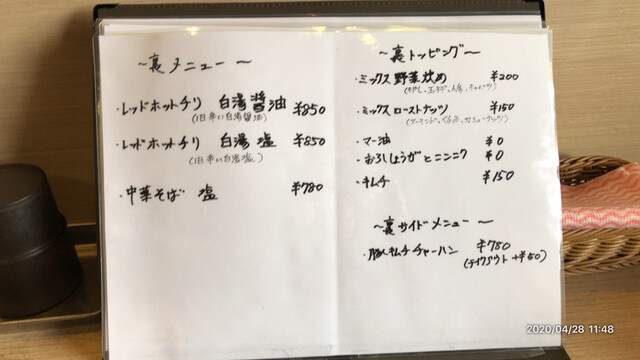 ～裏メニュー～
・レッドホットチリ 白湯醤油 ¥850
(旧辛い白湯醤油)
・レッドホットチリ 白湯 塩 ¥850
(旧辛い白湯塩)
・中華そば 塩 ¥780
～裏トッピング～
・ミックス野菜炒め ¥200
(もやし、玉ネギ、人参、キャベツ)
・ミックスローストナッツ ¥150
(アーモンド、くるみ、カシューナッツ)
・マー油 ¥0
・おろししょうがとニンニク ¥0
・キムチ ¥150
～裏サイドメニュー～
・豚キムチチャーハン ¥780
(テイクアウト +¥50)
2020/04/28 11:48